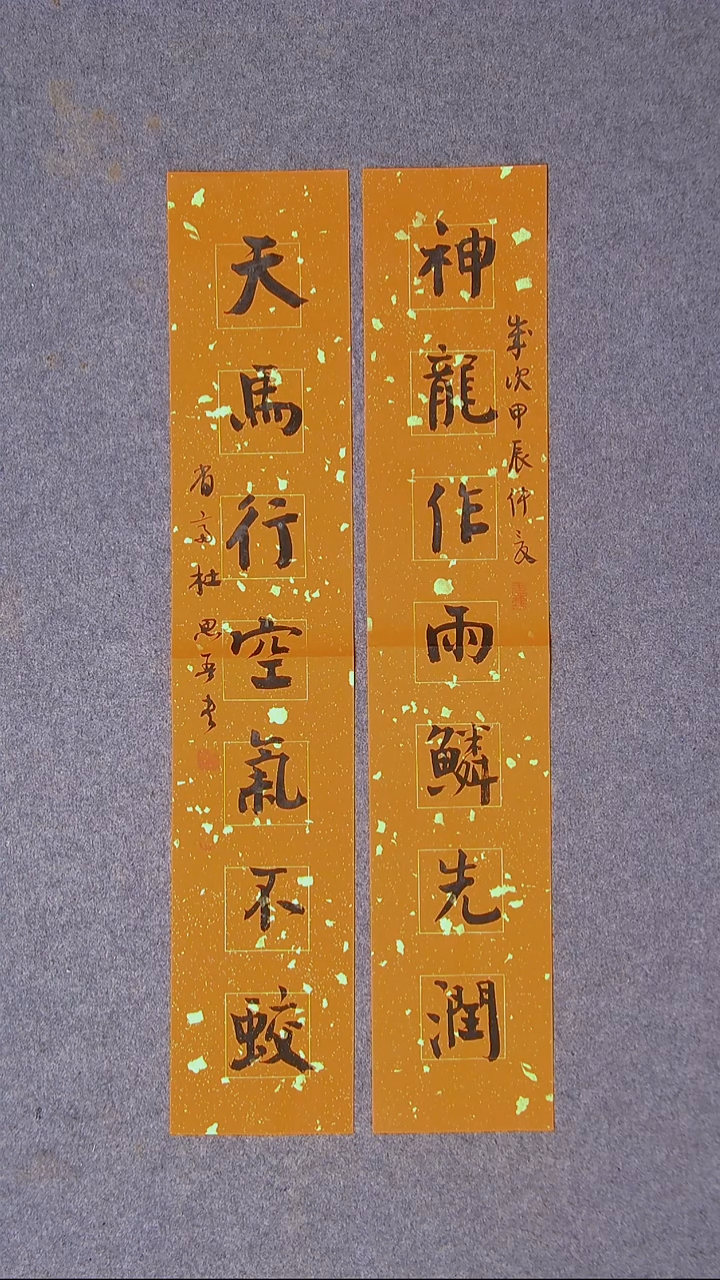 歲次甲辰仲夏
神龍作雨鱗先潤
天馬行空氣不蛟
省齋杜思吾書